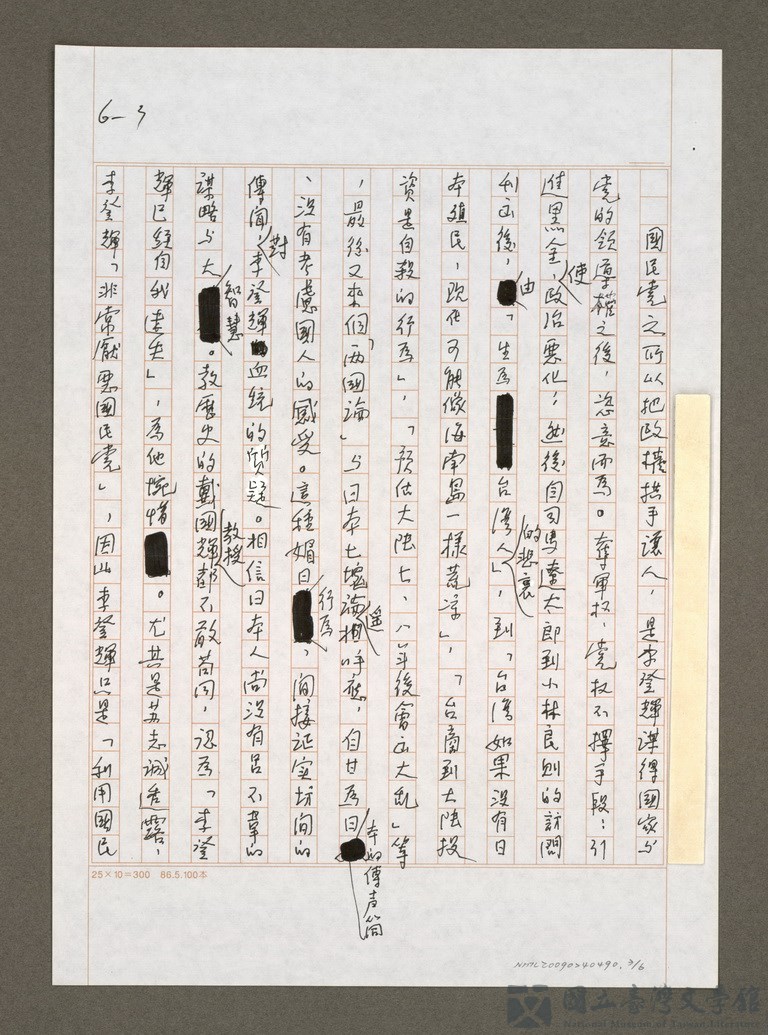 6-3
國民党之所以把政權拱手讓人，是李登輝謀得國家与
党的領導權之後，恣意而為。奪軍权、党权不擇手段；引
進黑金，使政治惡化；然後自司馬遼太郎到小林良則的訪問
利函後，由「生為台灣人的悲哀」，到「台灣如果沒有日
本殖民，現在可能像海南島一樣荒凉」，「台商到大陸投
資是自殺的行為」，「預估大陸七、八年後會出大亂」等
，最後又來個「兩國論」与日本七塊論遙相呼應，自甘為日本的傳声筒
、沒有考慮國人的感受。這種媚日行為，間接证实坊間的
傳聞，對李登輝血統的質疑。相信日本人尚沒有呂不韋的
謀略与大智慧。教歷史的戴國輝教授都不敢苟同，認為「李登
輝已經自我迷失」，為他惋惜。尤其是苏志誠透露，
李登輝「非常厭惡國民党」，因此李登輝只是「利用國民
25×10=300 86.5.100本
NMTL20090240490.3/6
國立臺灣文學館
National Museum of Taiwan Literature